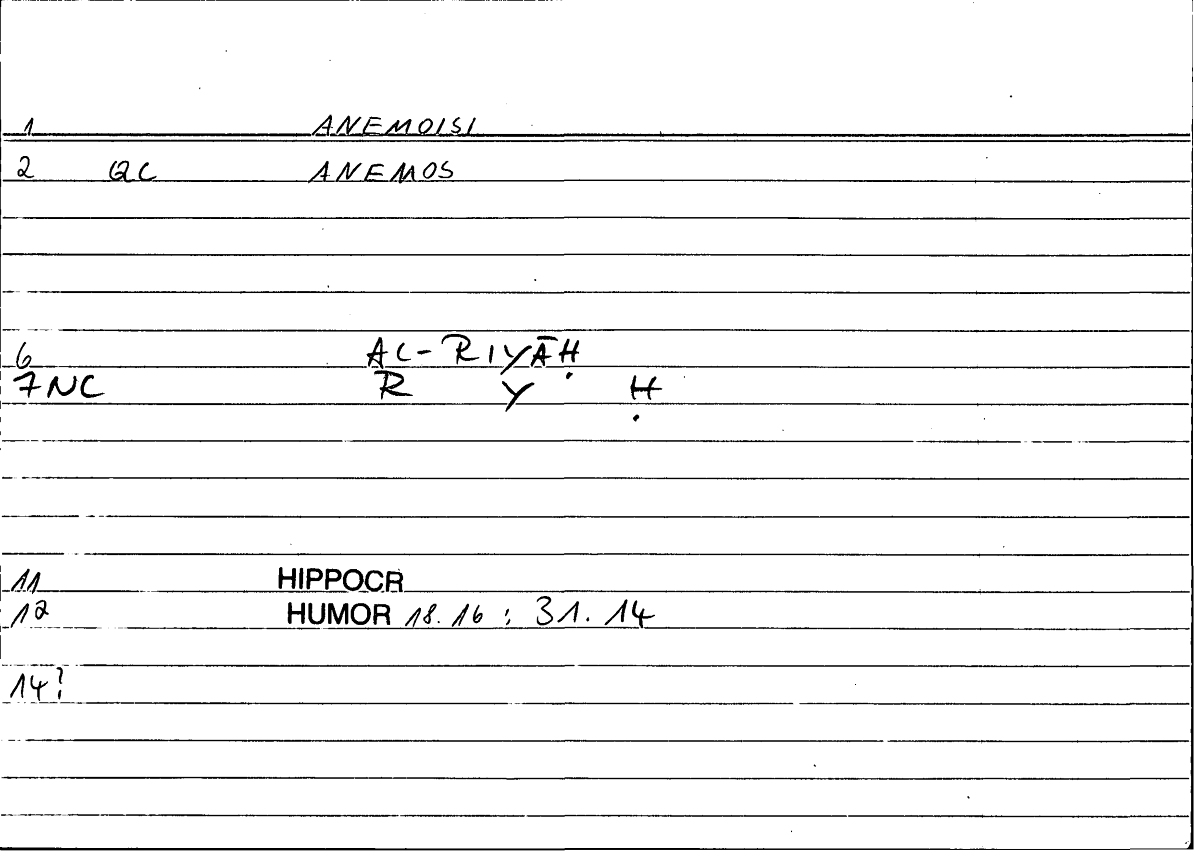 1 ANEMOISI
2 QC ANEMOS
6 AL-RIYĀḤ
7 NC R Y Ḥ
11 HIPPOCR
12 HUMOR 18.16 : 31.14
14?